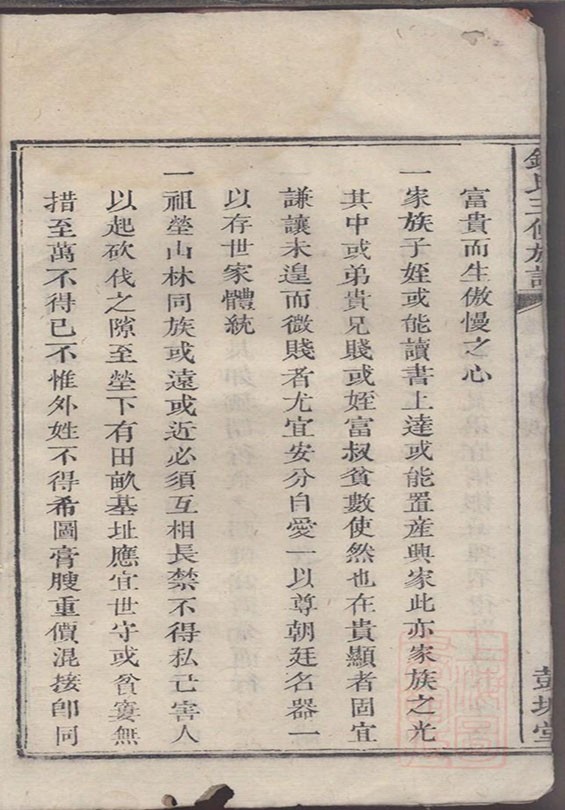 富貴而生傲慢之心
一家族子姪或能讀書上達或能置產興家此亦家族之光
其中或弟貴兄賤或姪富叔貧數使然也在貴顯者固宜
謙讓未遑而微賤者尤宜安分自愛一以尊朝廷名器一
以存世家體統
一祖塋山林同族或遠或近必須互相長禁不得私己害人
以起砍伐之隙至塋下有田畝基址應宜世守或貧窶無
措至萬不得已不惟外姓不得希圖膏腴重價混接卽同